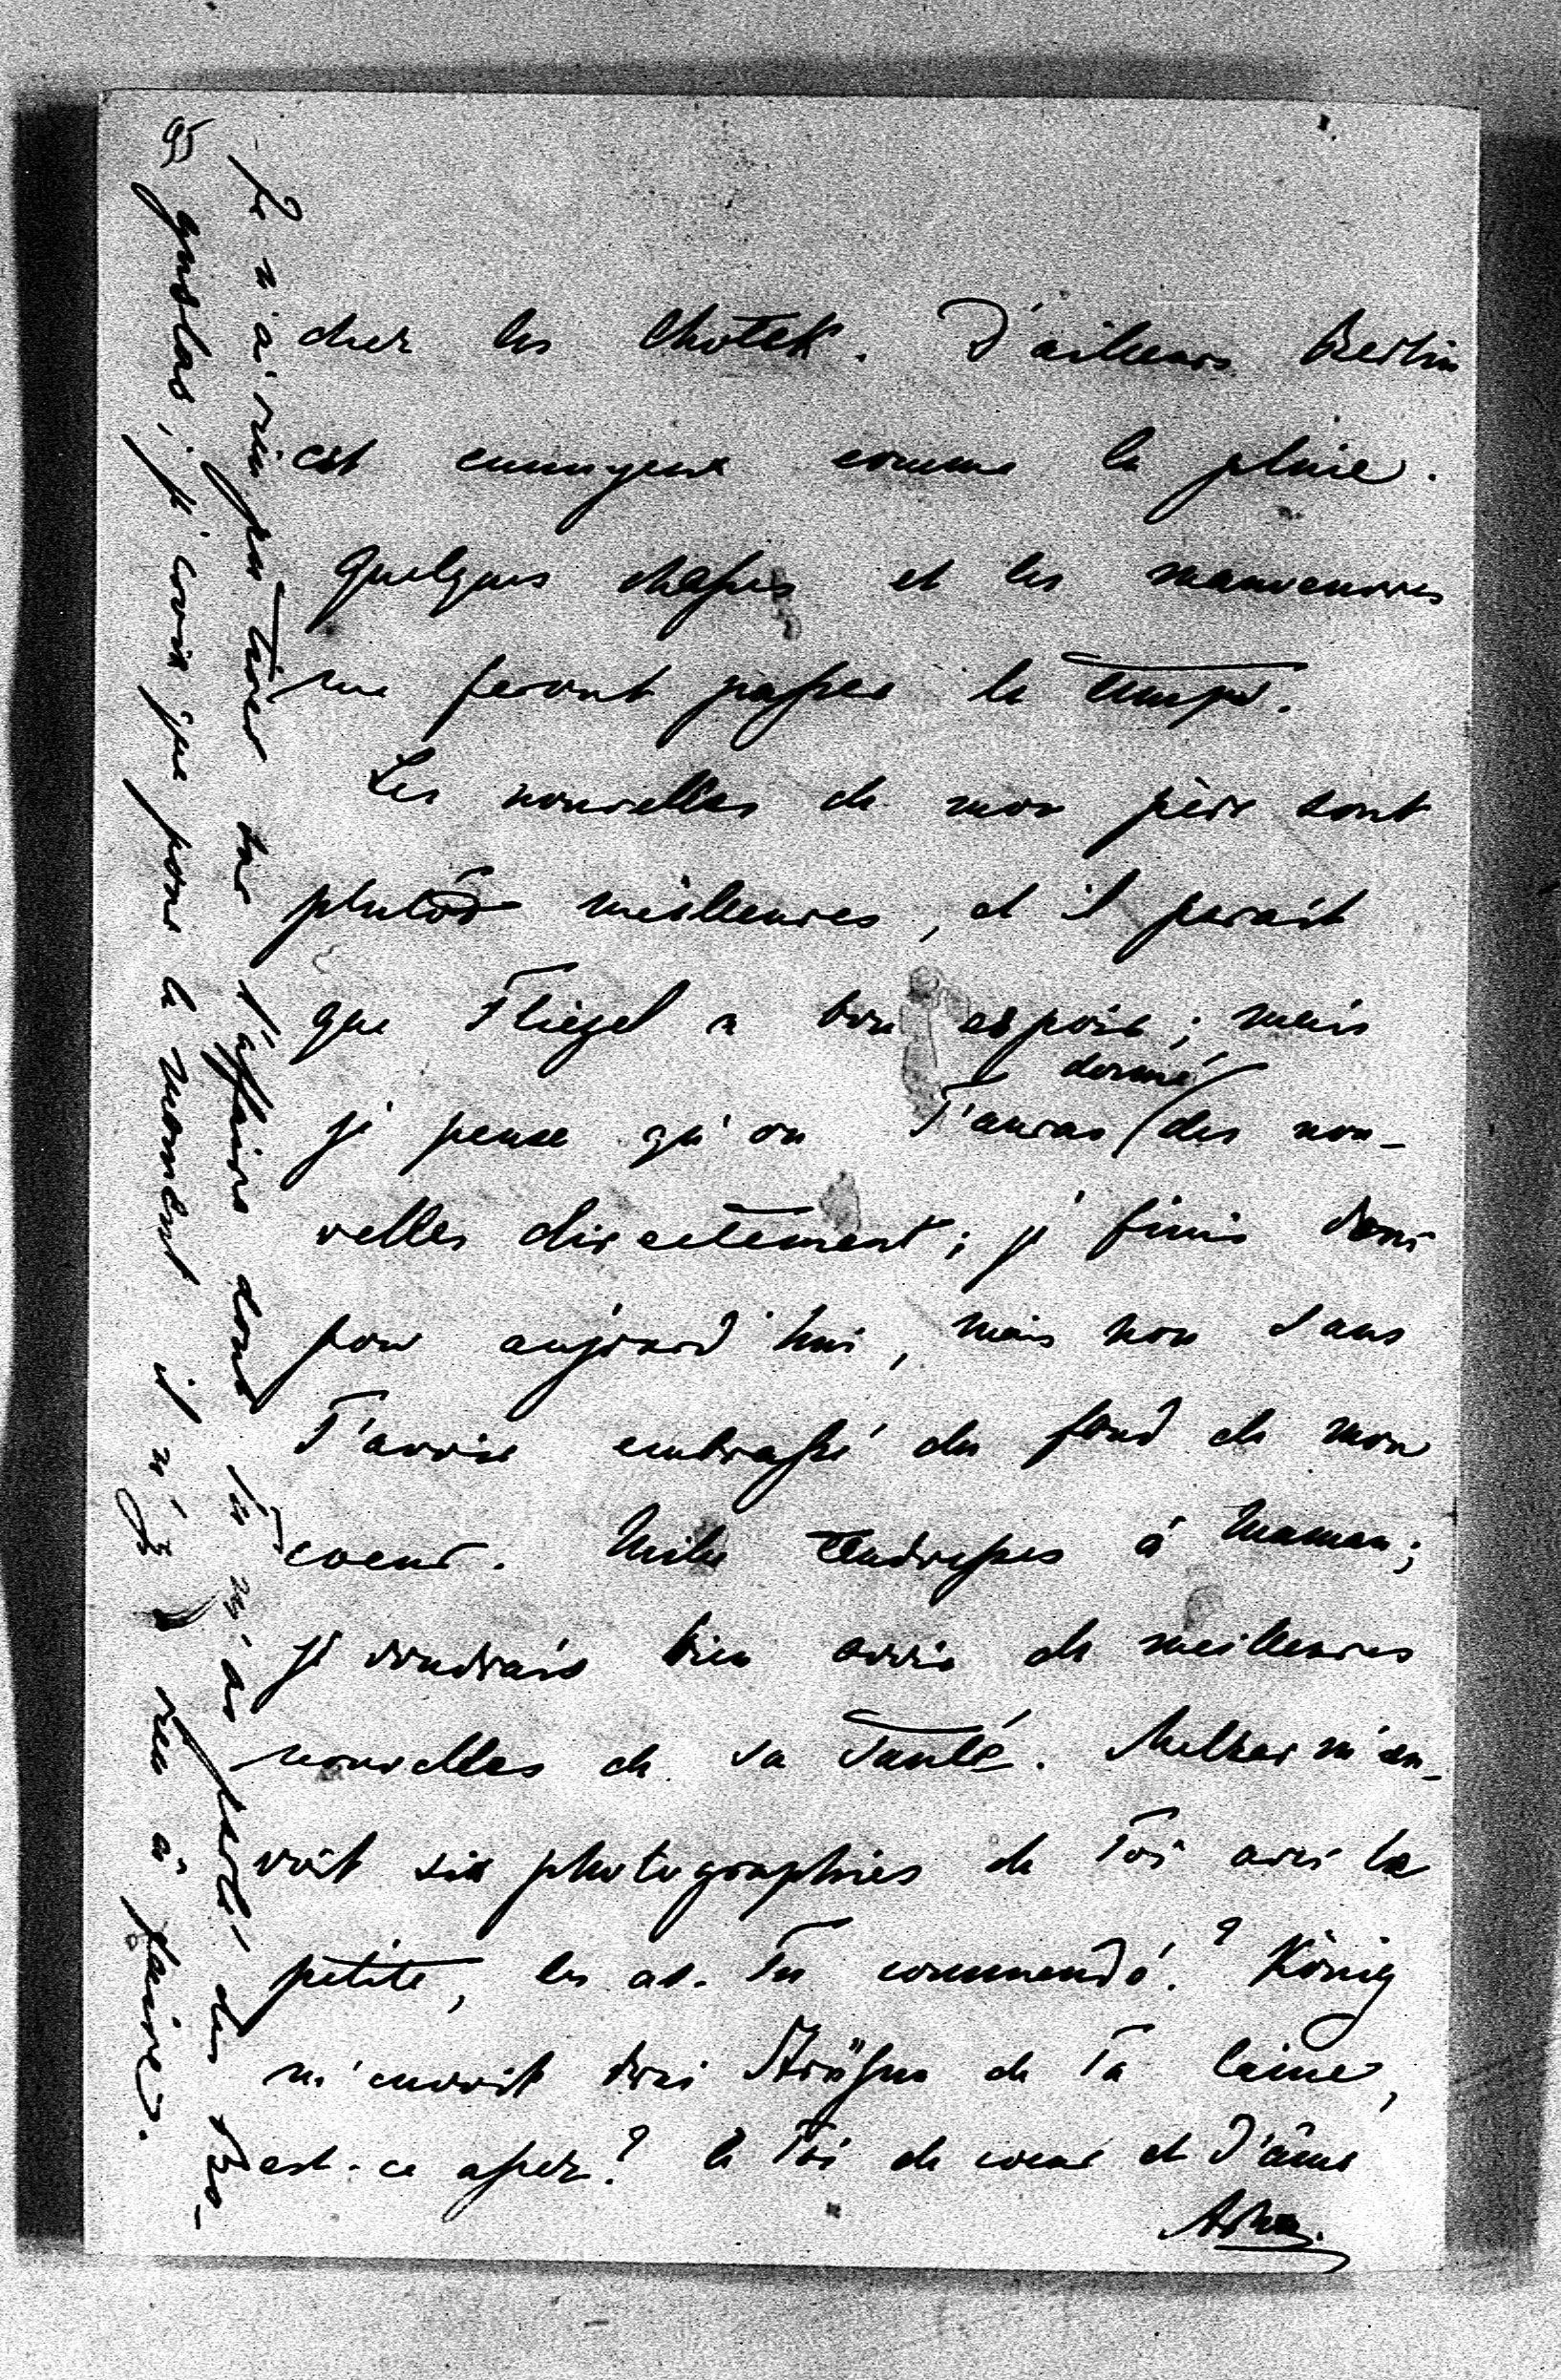 chez les Chotek. D'ailleurs Berlin
est ennuyeux comme la pluie.
Quelques chasses et les manoeuvres
me feront passer le temps.
Les nouvelles de mon père sont
plutôt meilleures, et il parait
que Fliegel a bon espoir; mais
donné
je pense qu'on T'auras des nou-
velles directement; je finis donc
pour aujourd'hui, mais non sans
T'avoir embrassé du fond de mon
coeur. Mille tendresses à Maman;
je voudrais bien avoir de meilleures
nouvelles de sa santé. Melzer m'en-
voit six photographies de Toi avec la
petite, les as-Tu commendé? König
m'envoit trois de Ta laine,
est-ce assez? à Toi de coeur et d'âme
Je n'ai rien pu tirer sur l'affaire dont Tu m'as parlé des
guslas; je crois que pour le moment il n'y a rien à faire.